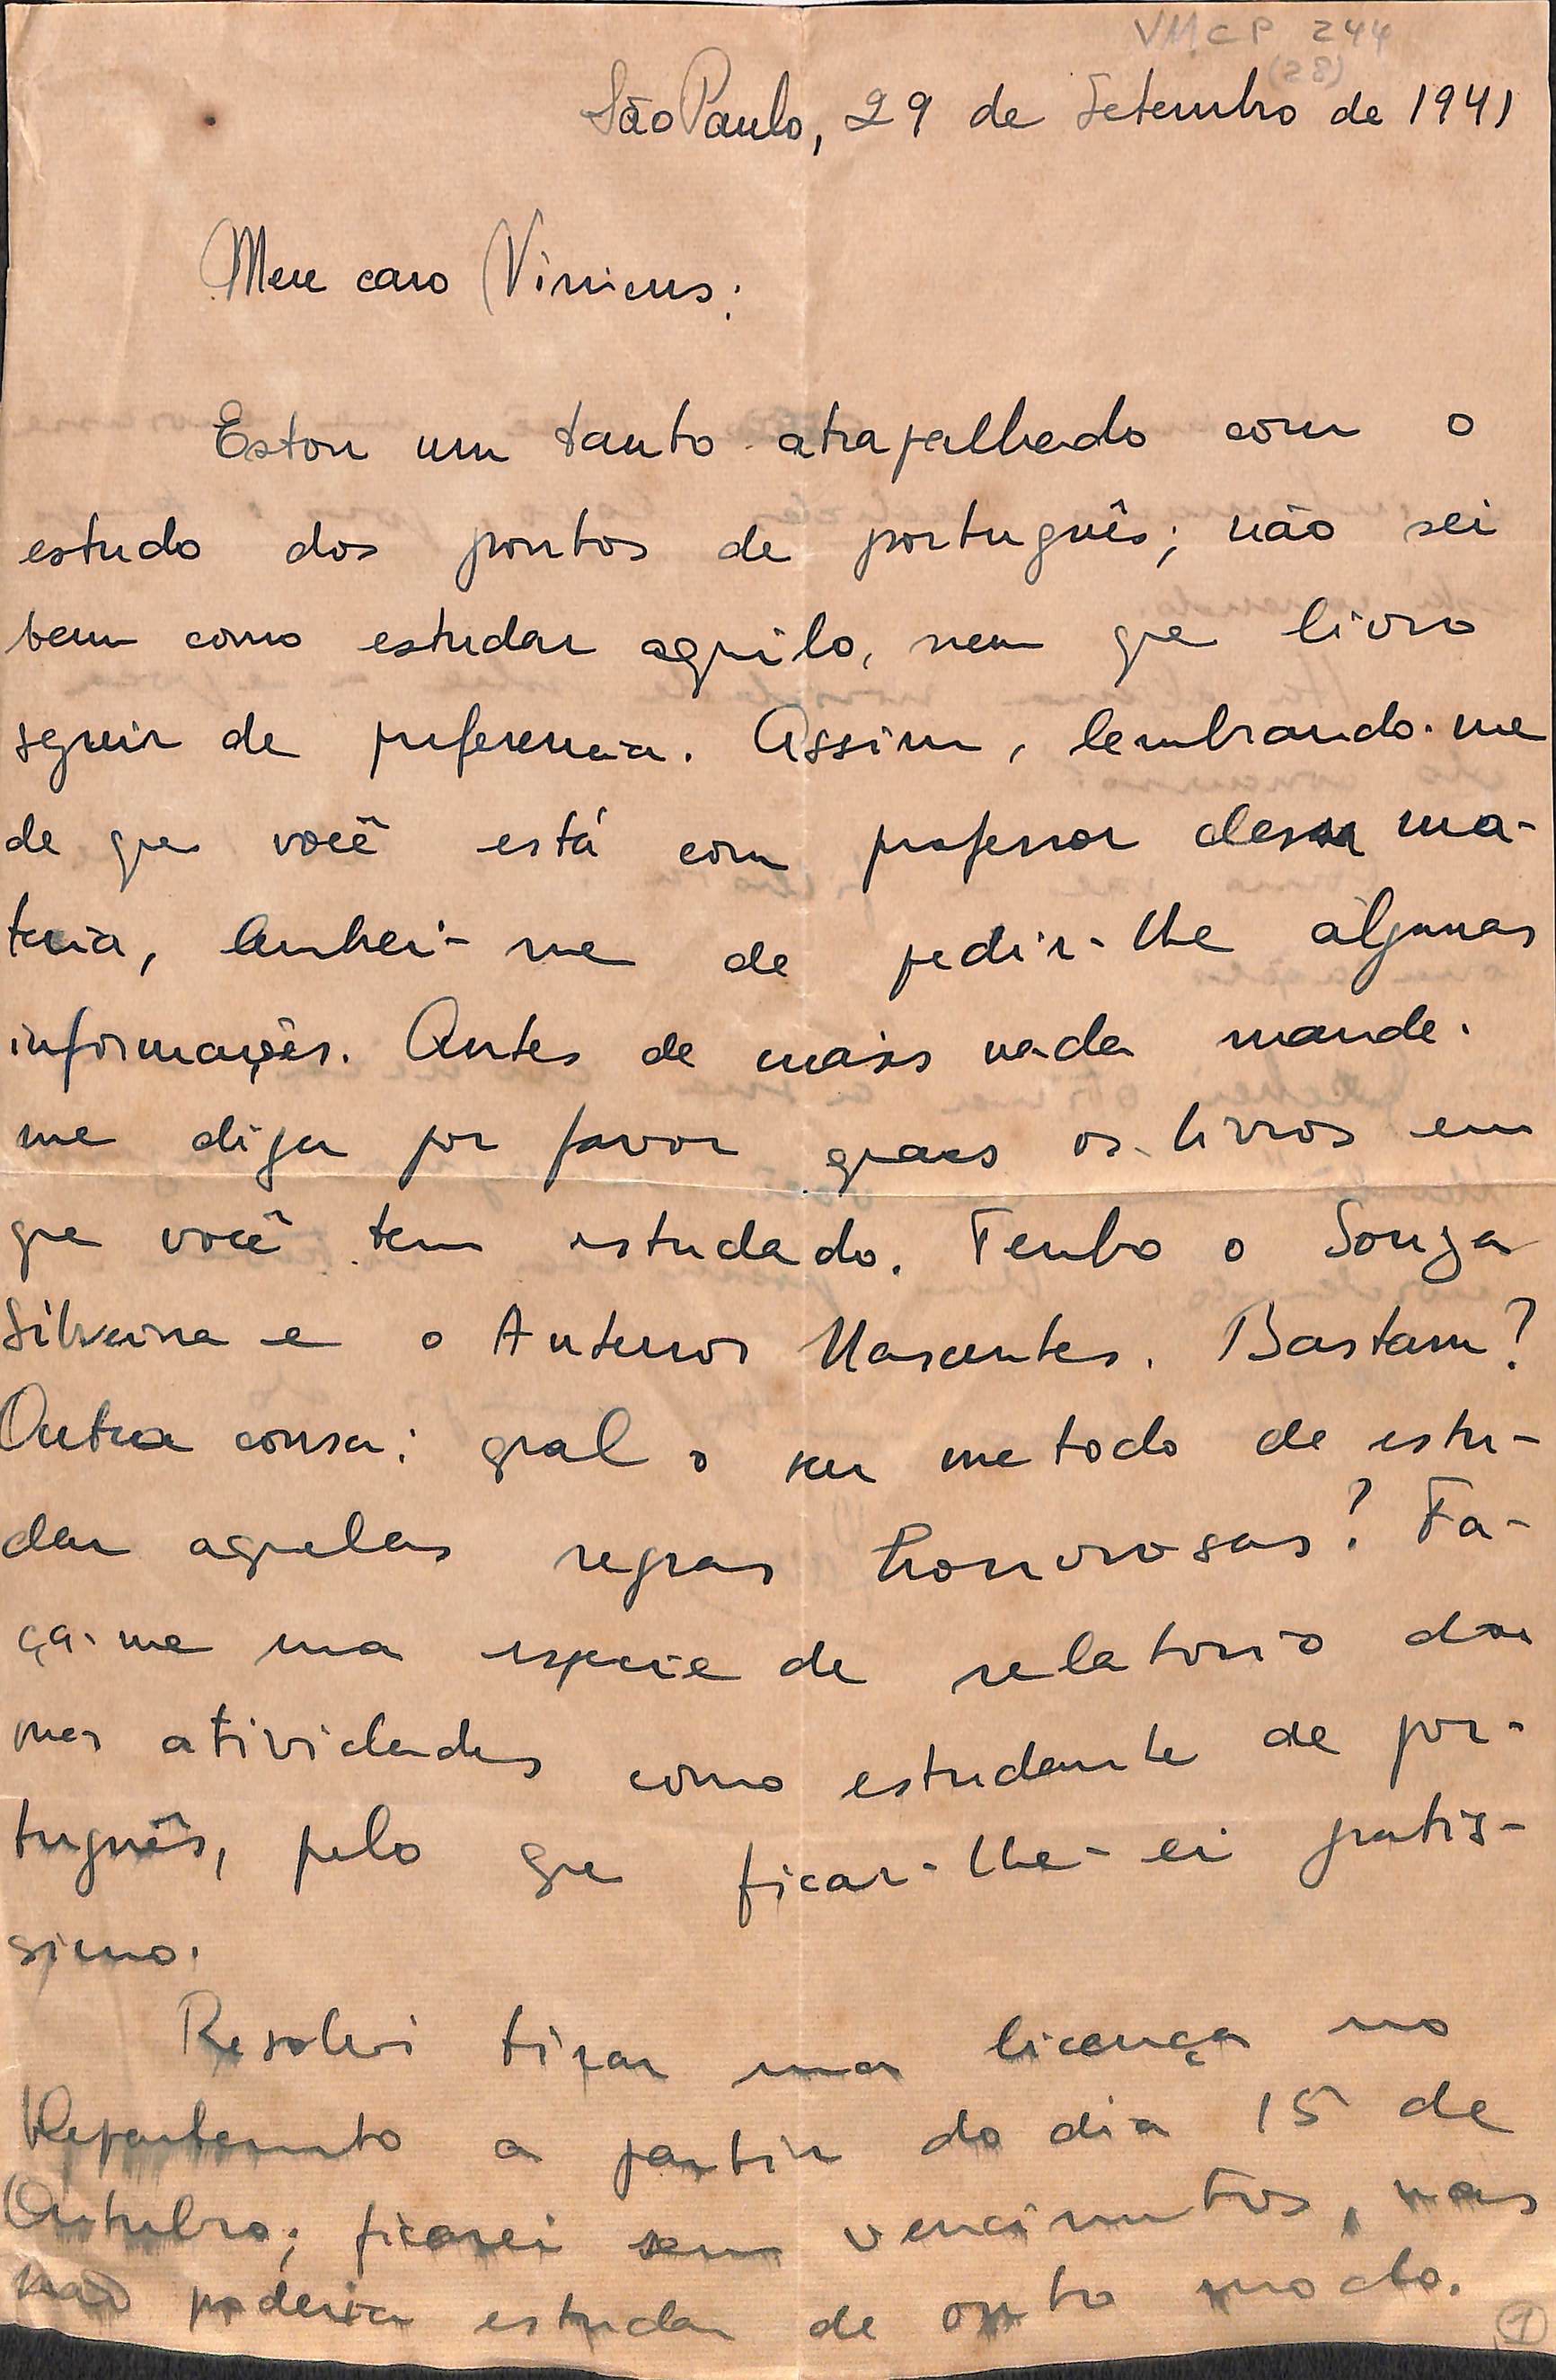 VMCP 244
(28)
São Paulo, 29 de Setembro de 1941
Meu caro Vinicius:
Estou um tanto atrapalhado com o
estudo dos pontos de português; não sei
bem como estudar aquilo, nem que livro
seguir de preferencia. Assim, lembrando-me
de que você está com professor dessa ma-
teria, lembrei-me de pedir-lhe algumas
informações. Antes de mais nada mande-
me dizer por favor quaes os livros em
que você tem estudado. Tenho o Souza
Silveira e o Antenor Nascentes. Bastam?
Outra cousa: qual o seu metodo de estu-
dar aquelas regras horrorosas? Fa-
ça-me uma especie de relatorio das
suas atividades como estudante de por-
tuguês, pelo que ficar-lhe-ei gratis-
simo.
Resolvi tirar uma licença no
Departamento a partir do dia 15 de
Outubro; ficarei sem vencimentos, mas
não poderia estudar de outro modo.
1